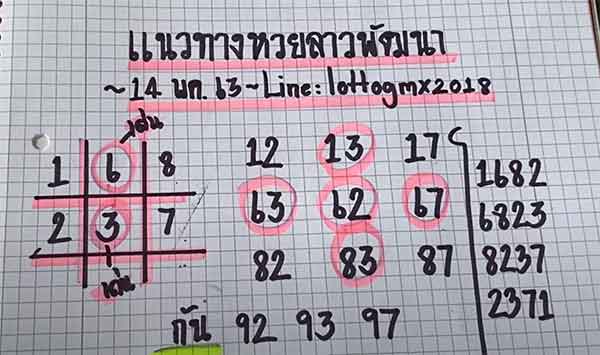 แนวทางหวยลาวพัฒนา
~14 มก. 63~Line: lottogmx2018
เด่น
1 6 8
2 3 7
เด่น
12 13 17
63 62 67
82 83 87
กัน 92 93 97
1682
6823
8237
2371